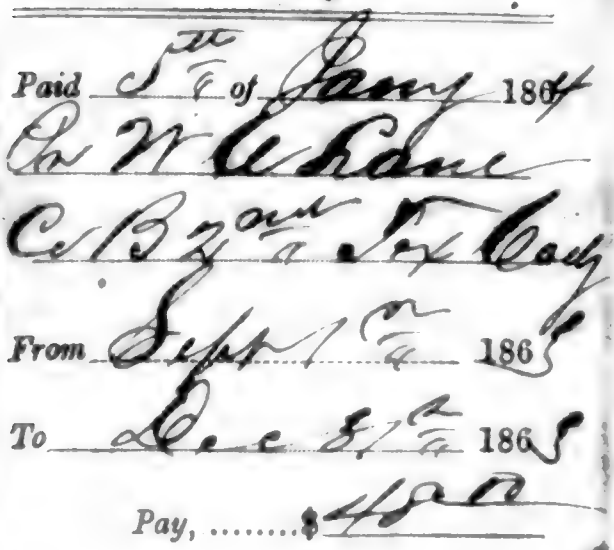 Paid 5th of Jany 1864
W A Lane
Co B 2nd Tex Cavy
From Sept 1st 1863
To Dec 31st 1863
Pay, ........$ 48 00